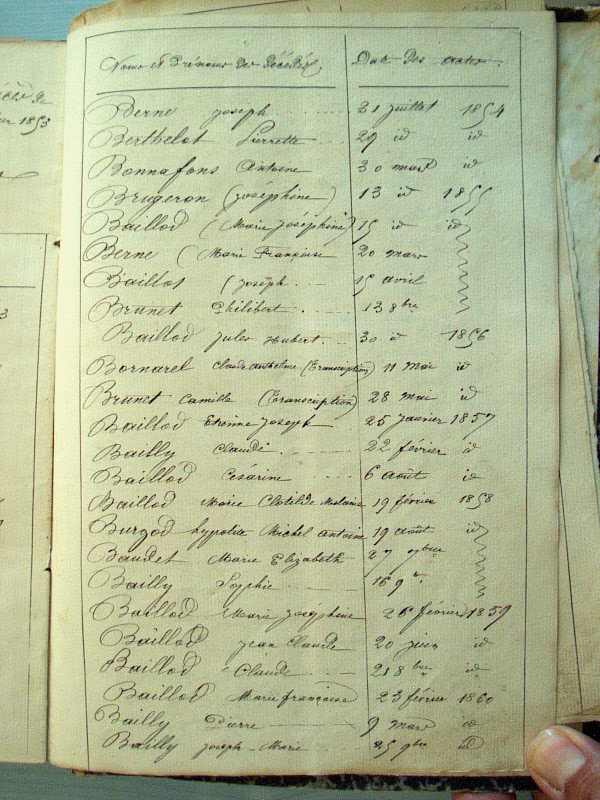 de
1853
3
Noms et Prénoms des Décédés. Date des actes.
Berne joseph 31 juillet 1854
Berthelot Pierrette 29 id id
Bonnafons Antoine 30 mars id
Brugeron (joséphine) 13 id 1855
Baillod (Marie joséphine) 15 id id
Berne (Marie Françoise 20 mars
Baillot (joseph 15 avril
Brunet Philibert 13 8bre
Baillod jules Hubert 30 id 1856
Bornarel Claude anthelme (transcription) 11 Mai id
Brunet Camille (transcription) 28 mai id
Baillod Etienne joseph 25 janvier 1857
Bailly Claude 22 février id
Baillod Césarine 6 août id
Baillod Marie Clotilde Melanie 19 février 1858
Burgod hypolite Michel antoine 19 août id
Baudet Marie Elizabeth 27 9bre
Bailly Sophie 16 9
Baillod Marie joséphine 26 février 1859
Baillod jean Claude 20 juin id
Baillod Claude 21 8bre id
Baillod Marie françoise 23 février 1860
Bailly Pierre 9 mars id
Bailly joseph-Marie 25 9bre id